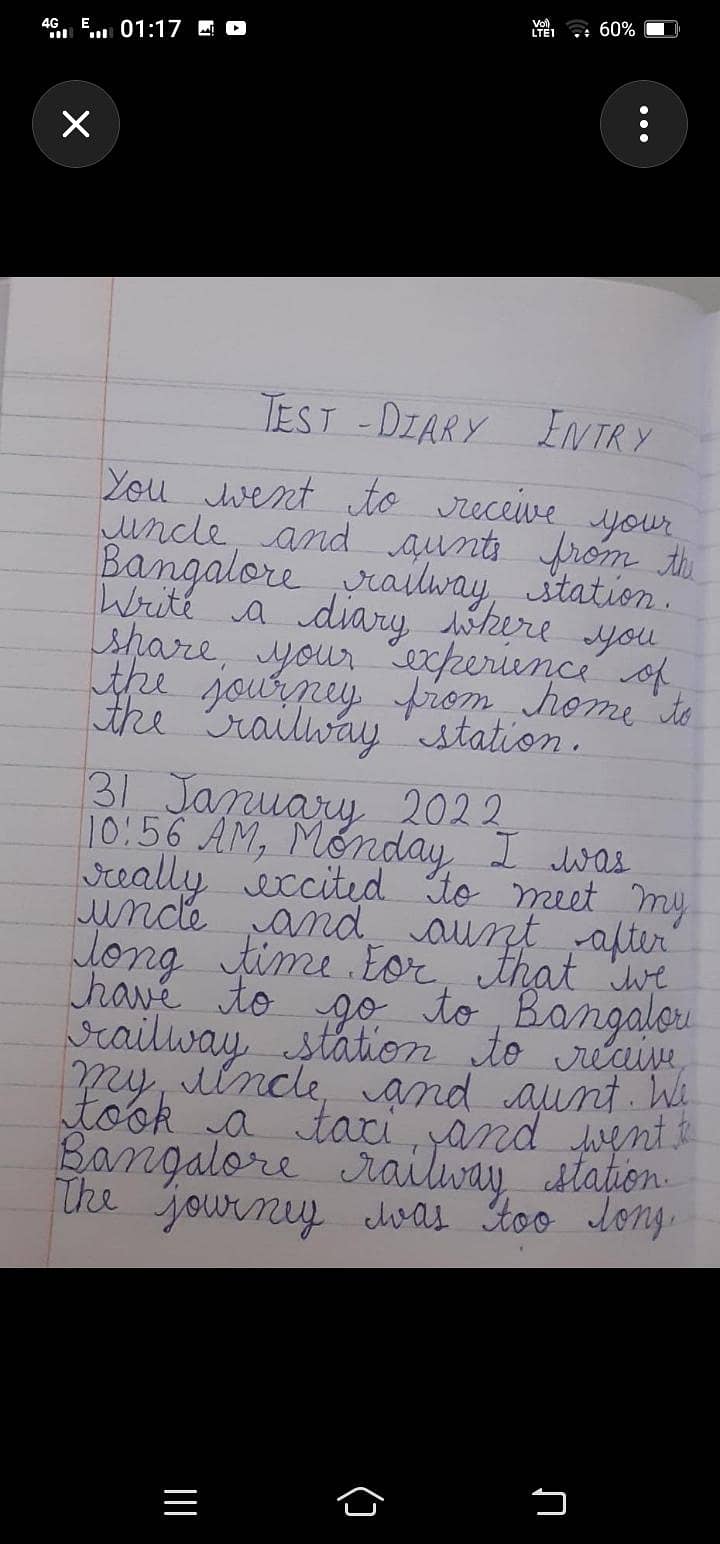 4G E 01:17 Vo) LTE1 60%
TEST - DIARY ENTRY
You went to receive your
uncle and aunts from the
Bangalore railway station.
Write a diary where you
share your experience of
the journey from home to
the railway station.
31 January 2022
10:56 AM, Monday I was
really excited to meet my
uncle and aunt after
long time. For that we
have to go to Bangalore
railway station to receive
my uncle and aunt. We
took a taxi, and went to
Bangalore railway station.
The journey was too long.